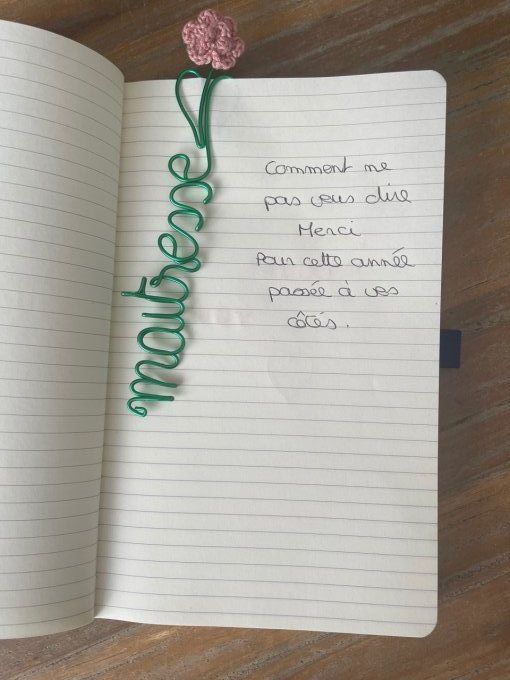 maitresse
Comment ne
pas vous dire
Merci
Pour cette année
passée à vos
côtés.